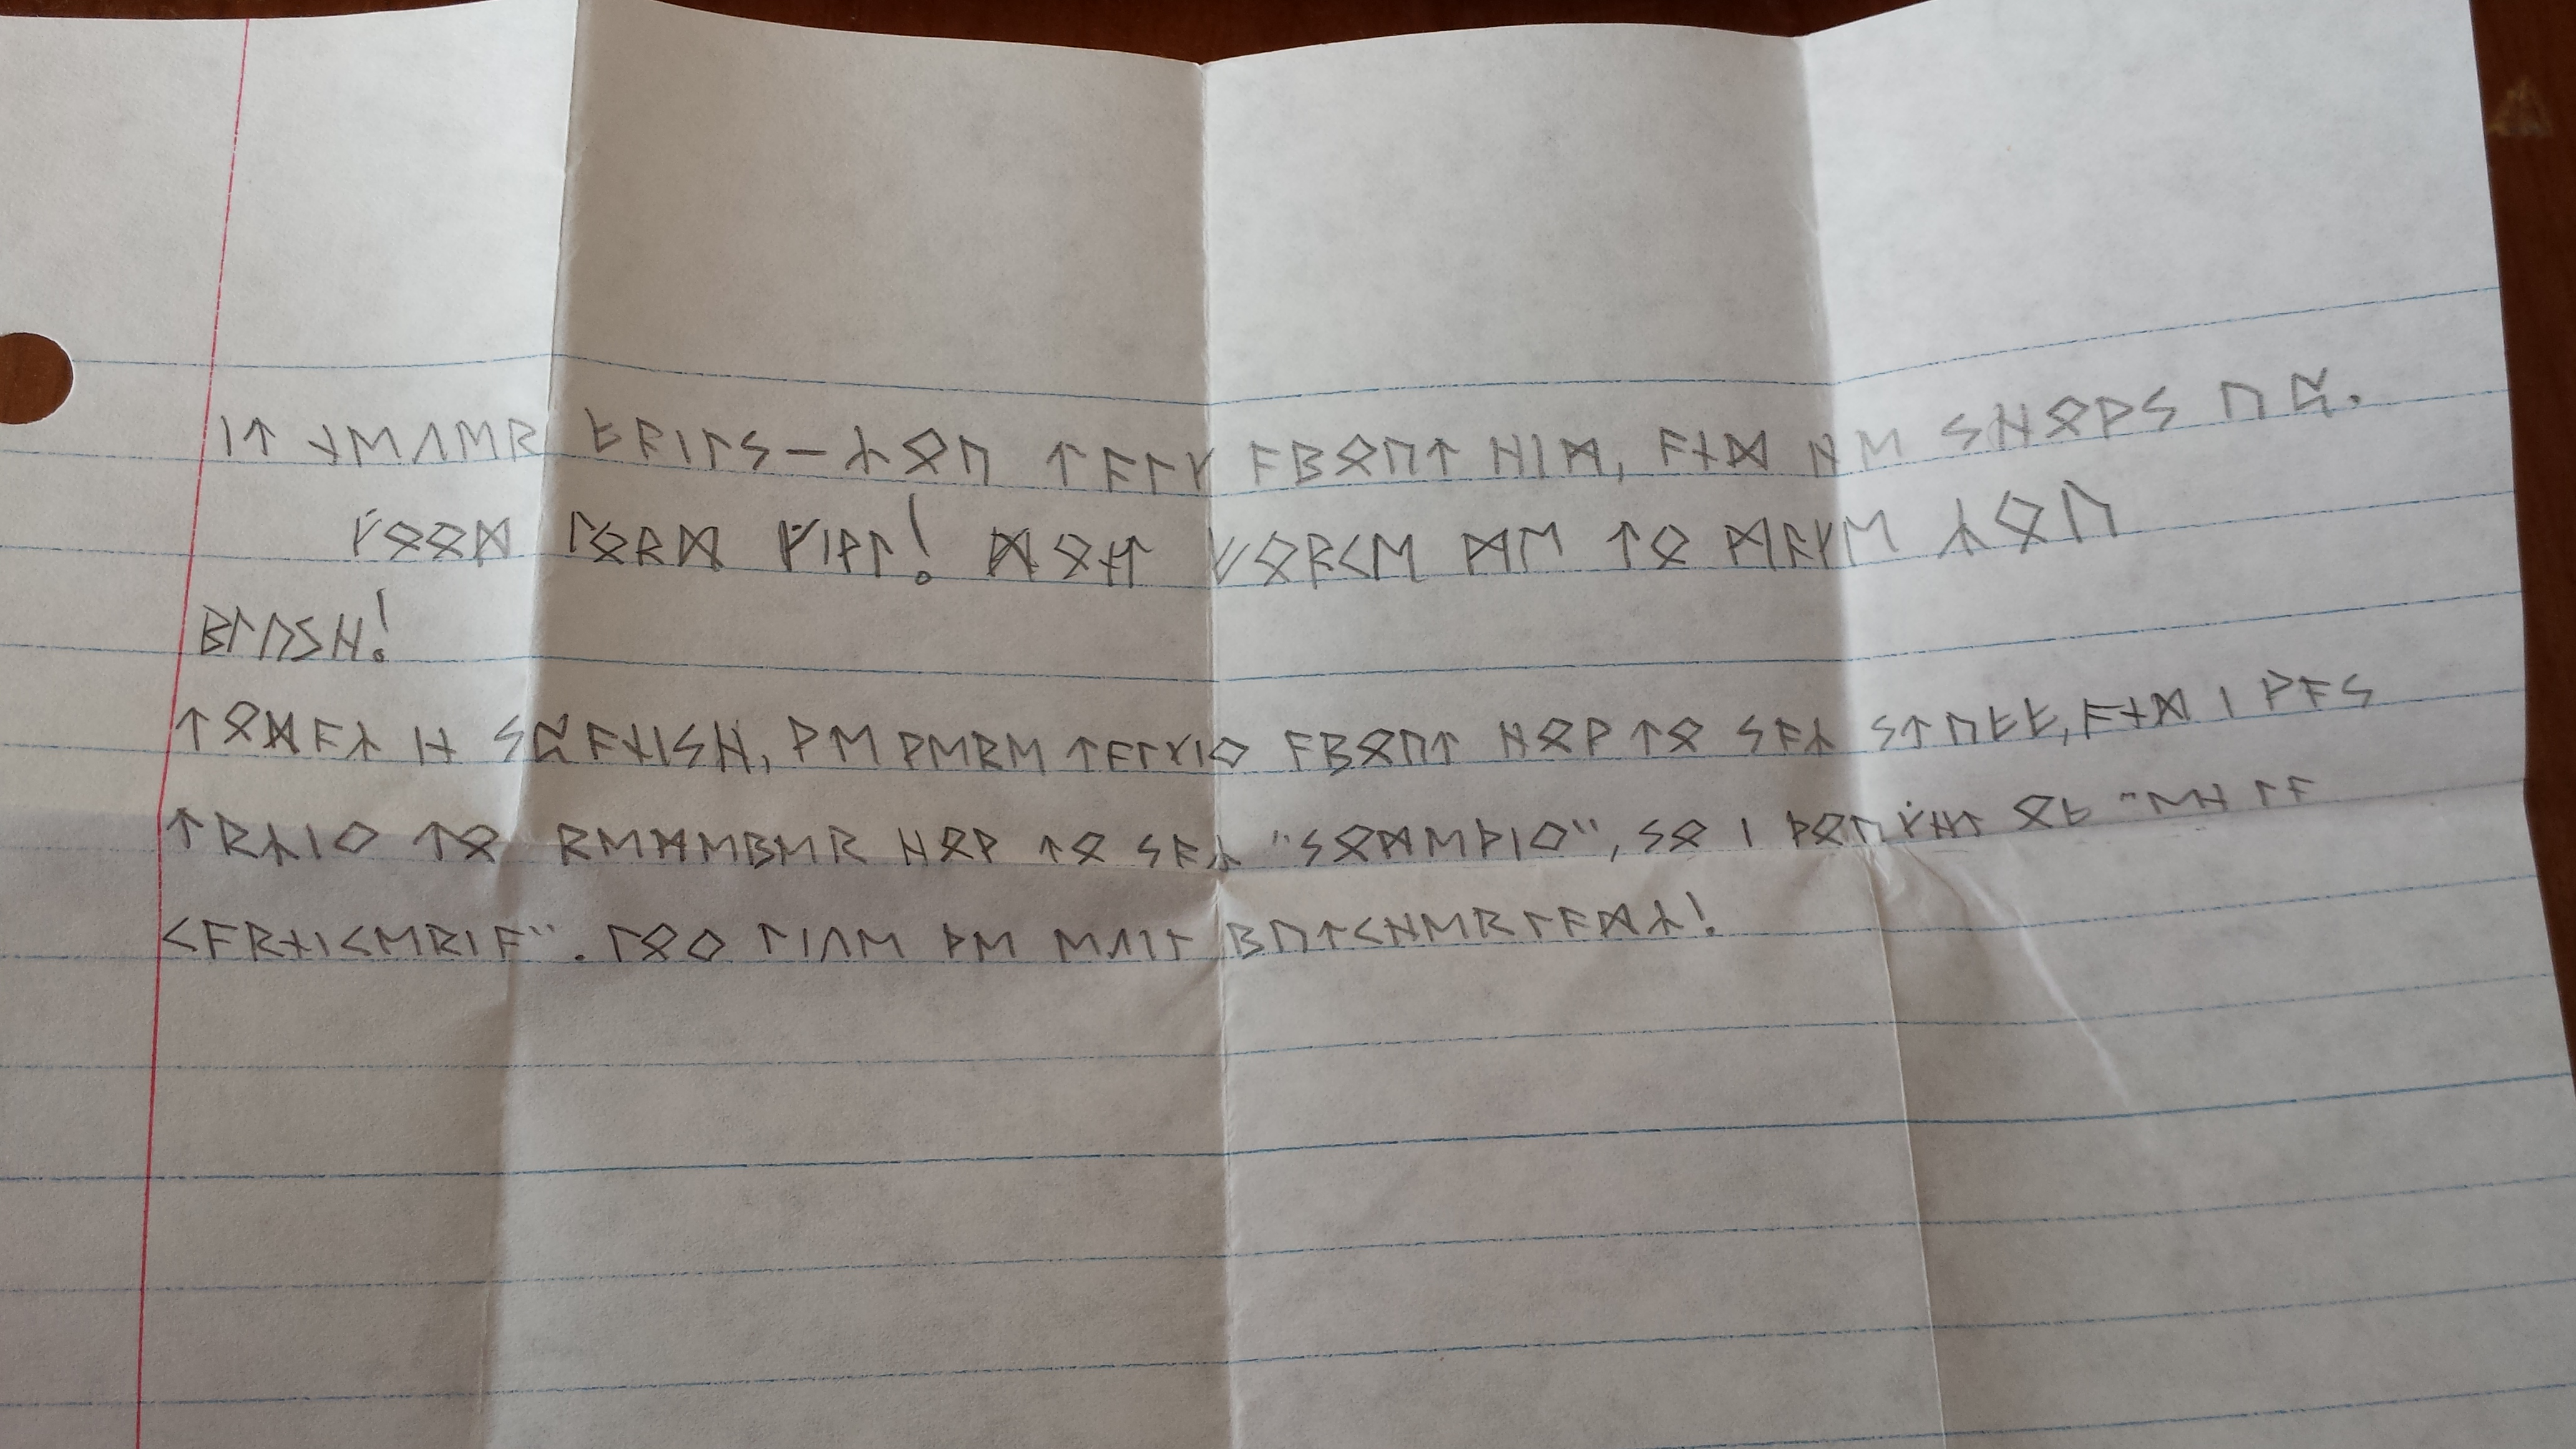 ᛁᛏ ᚾᛖᚢᛖᚱ ᚠᚨᛁᛚᛋ—ᛦᛟᚢ ᛏᚨᛚᚴ ᚨᛒᛟᚢᛏ ᚺᛁᛗ, ᚨᚾᛞ ᚺᛖ ᛋᚺᛟᚹᛋ ᚢᛈ.
ᚵᛟᛟᛞ ᛚᛟᚱᛞ ᚵᛁᚱᛚ! ᛞᛟᚾᛏ ᚠᛟᚱᚲᛖ ᛗᛖ ᛏᛟ ᛗᚨᚴᛖ ᛦᛟᚢ
ᛒᛚᚢᛋᚺ!
ᛏᛟᛞᚨᛦ ᛁᚾ ᛋᛈᚨᚾᛁᛋᚺ, ᚹᛖ ᚹᛖᚱᛖ ᛏᚨᛚᚴᛁᛜ ᚨᛒᛟᚢᛏ ᚺᛟᚹ ᛏᛟ ᛋᚨᛦ ᛋᛏᚢᚠᚠ, ᚨᚾᛞ ᛁ ᚹᚨᛋ
ᛏᚱᛦᛁᛜ ᛏᛟ ᚱᛖᛗᛖᛒᛖᚱ ᚺᛟᚹ ᛏᛟ ᛋᚨᛦ "ᛋᛟᛗᛖᚦᛁᛜ", ᛋᛟ ᛁ ᚦᛟᚢᚵᚺᛏ ᛟᚠ "ᛖᚾ ᛚᚨ
ᚲᚨᚱᚾᛁᚲᛖᚱᛁᚨ". ᛚᛟᛜ ᛚᛁᚢᛖ ᚦᛖ ᛖᚢᛁᛚ ᛒᚢᛏᚲᚺᛖᚱᛚᚨᛞᛦ!